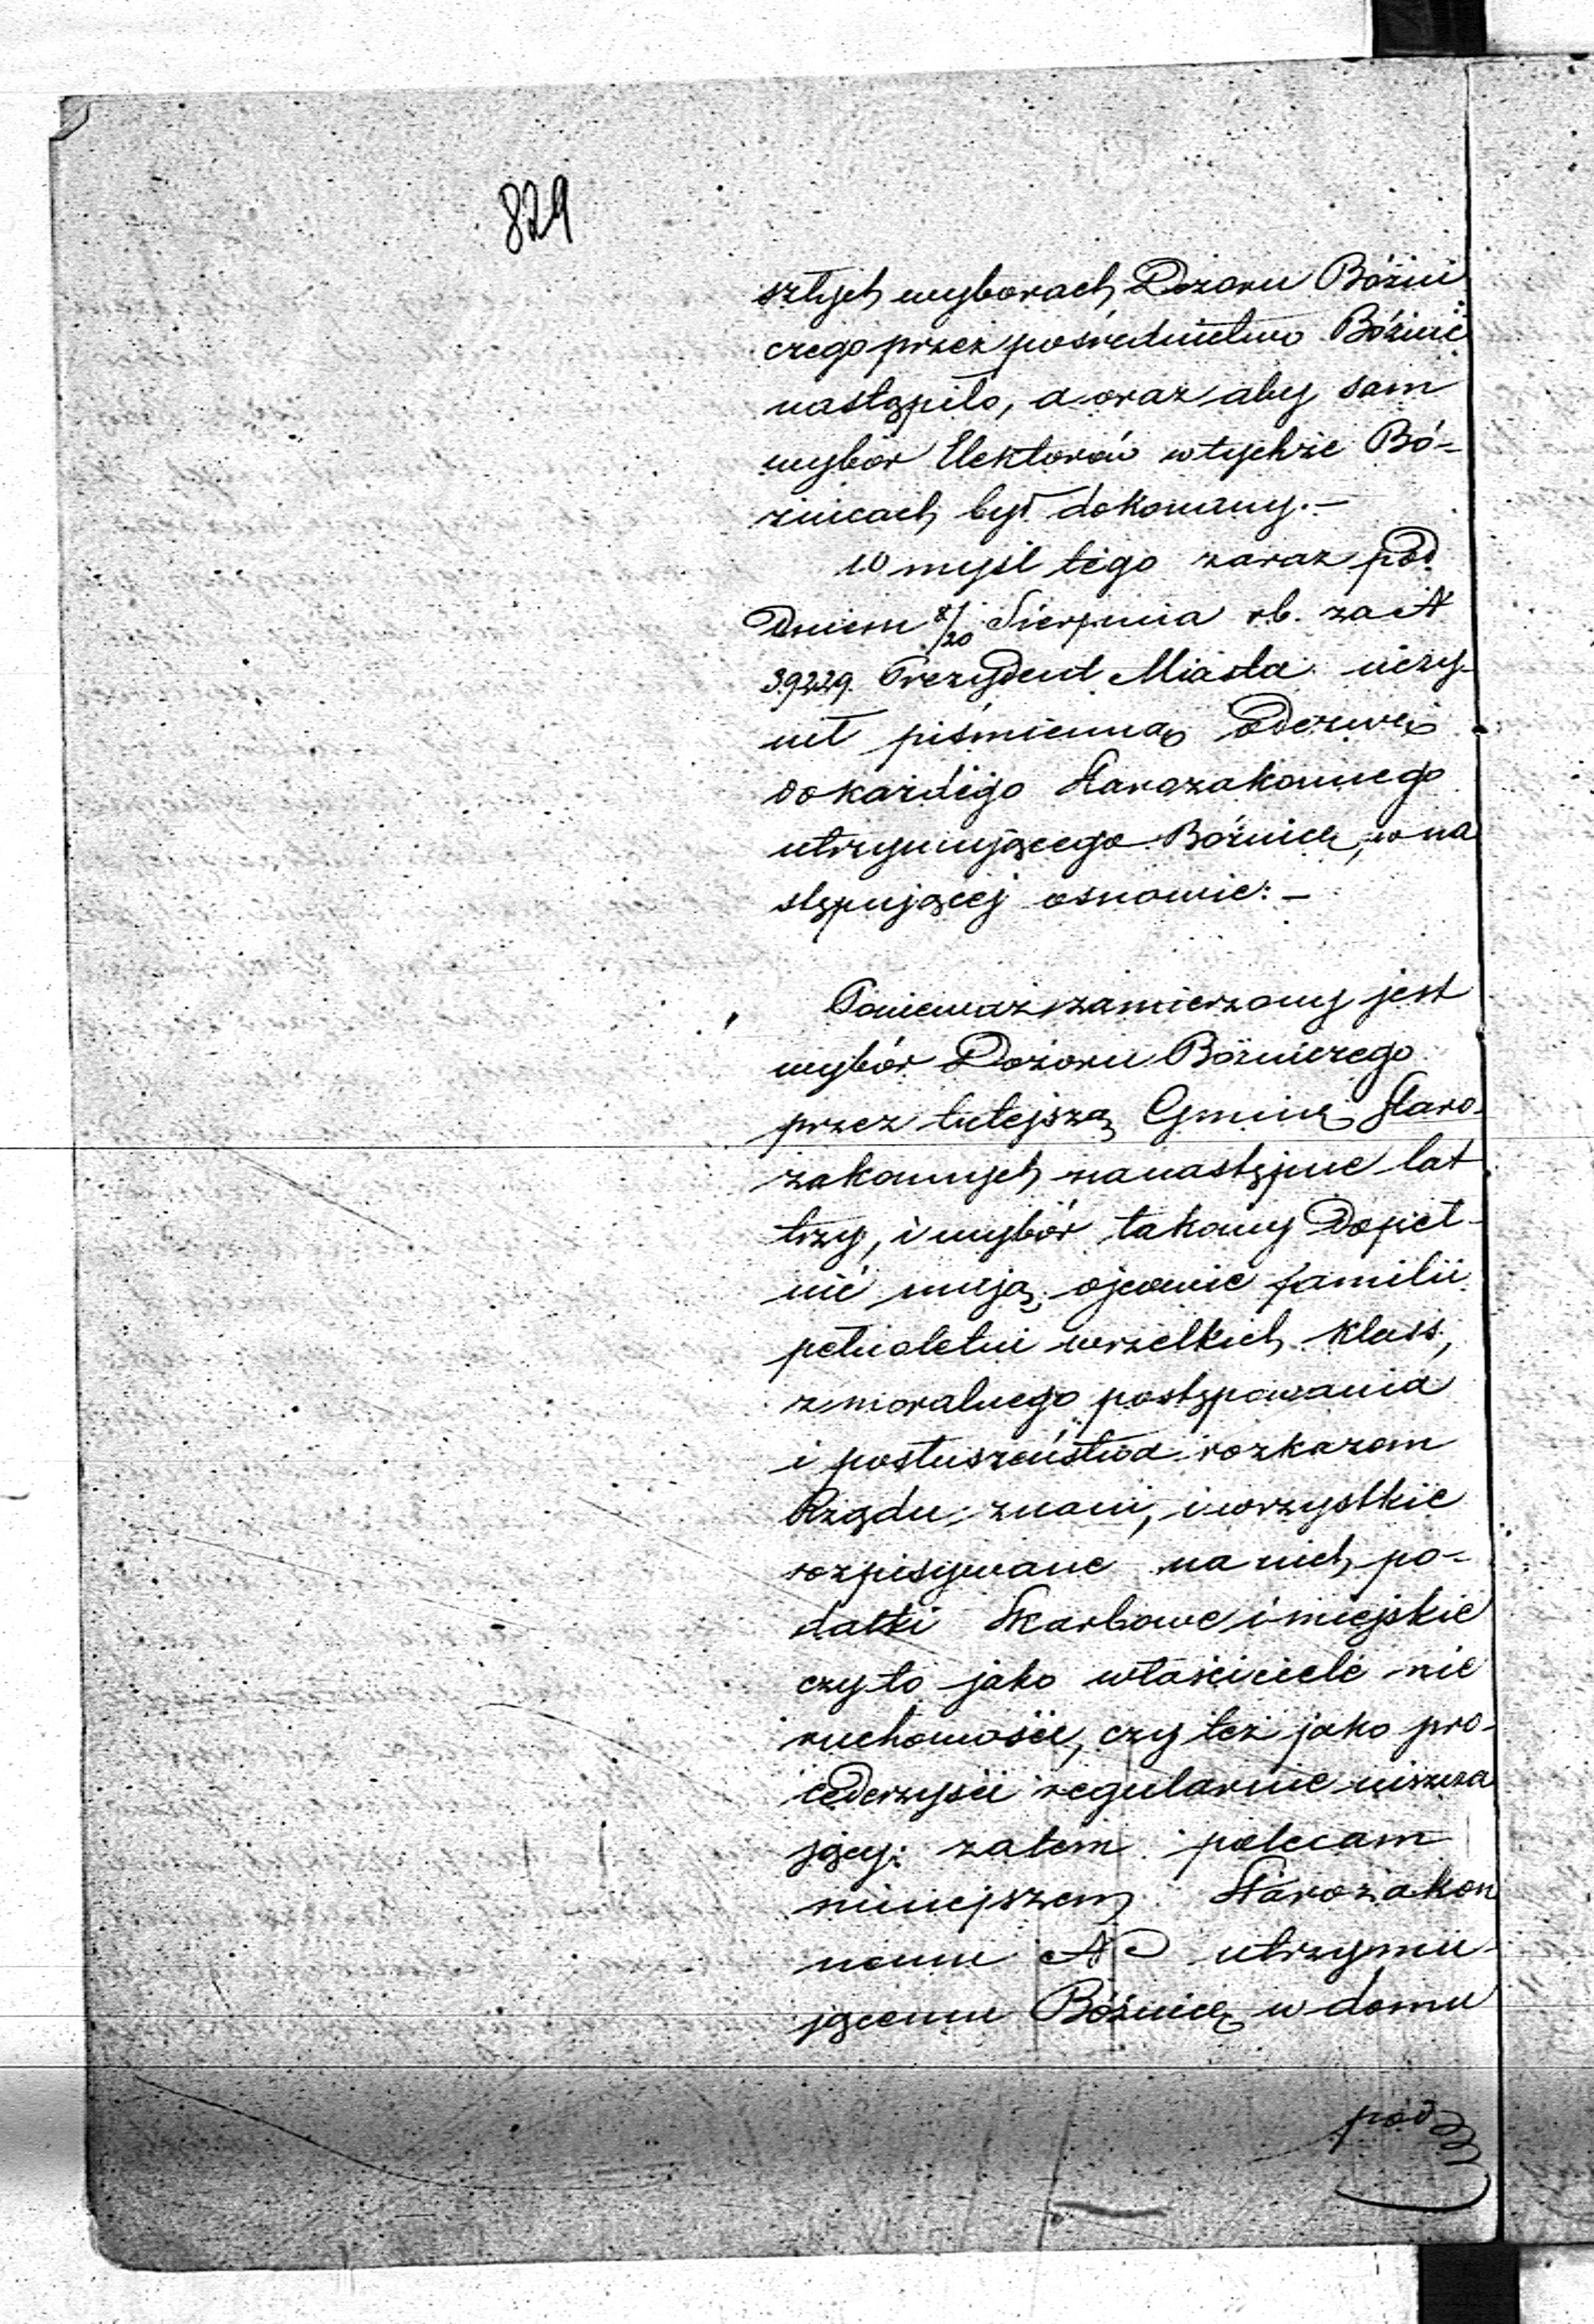 829
szłych wyborach Dozoru Bóźni
czego przez pośrednictwo Bóźnic
nastąpiło, a oraz aby sam
wybór Elektorów w tychże Bó-
żnicach był dokonany.—
W myśl tego zaraz pod
Dniem 8/20 Sierpnia rb. za N
39229. Prezydent Miasta uczy-
nił piśmienną Odezwę
do każdego Starozakonnego
utrzymującego Bóżnicę, w na
stępującej osnowie:—
Ponieważ zamierzony jest
wybór Dozoru Bóżniczego
przez tutejszą Gminę Staro-
zakonnych na następne lat
trzy, i wybór takowy Dopeł-
nić mają ojcowie familii
pełnoletni wszelkich klass,
z moralnego postępowania
i posłuszeństwa rozkazom
Rządu, znani, i wszystkie
rozpisywane na nich po-
datki Skarbowe i miejskie
czy to jako właściciele nie
ruchomości, czy też jako pro-
cederzyści regularnie uiszcza
jący; zatem polecam
niniejszem Starozakon
nemu N utrzymu-
jącemu Bóżnicę w domu
pod